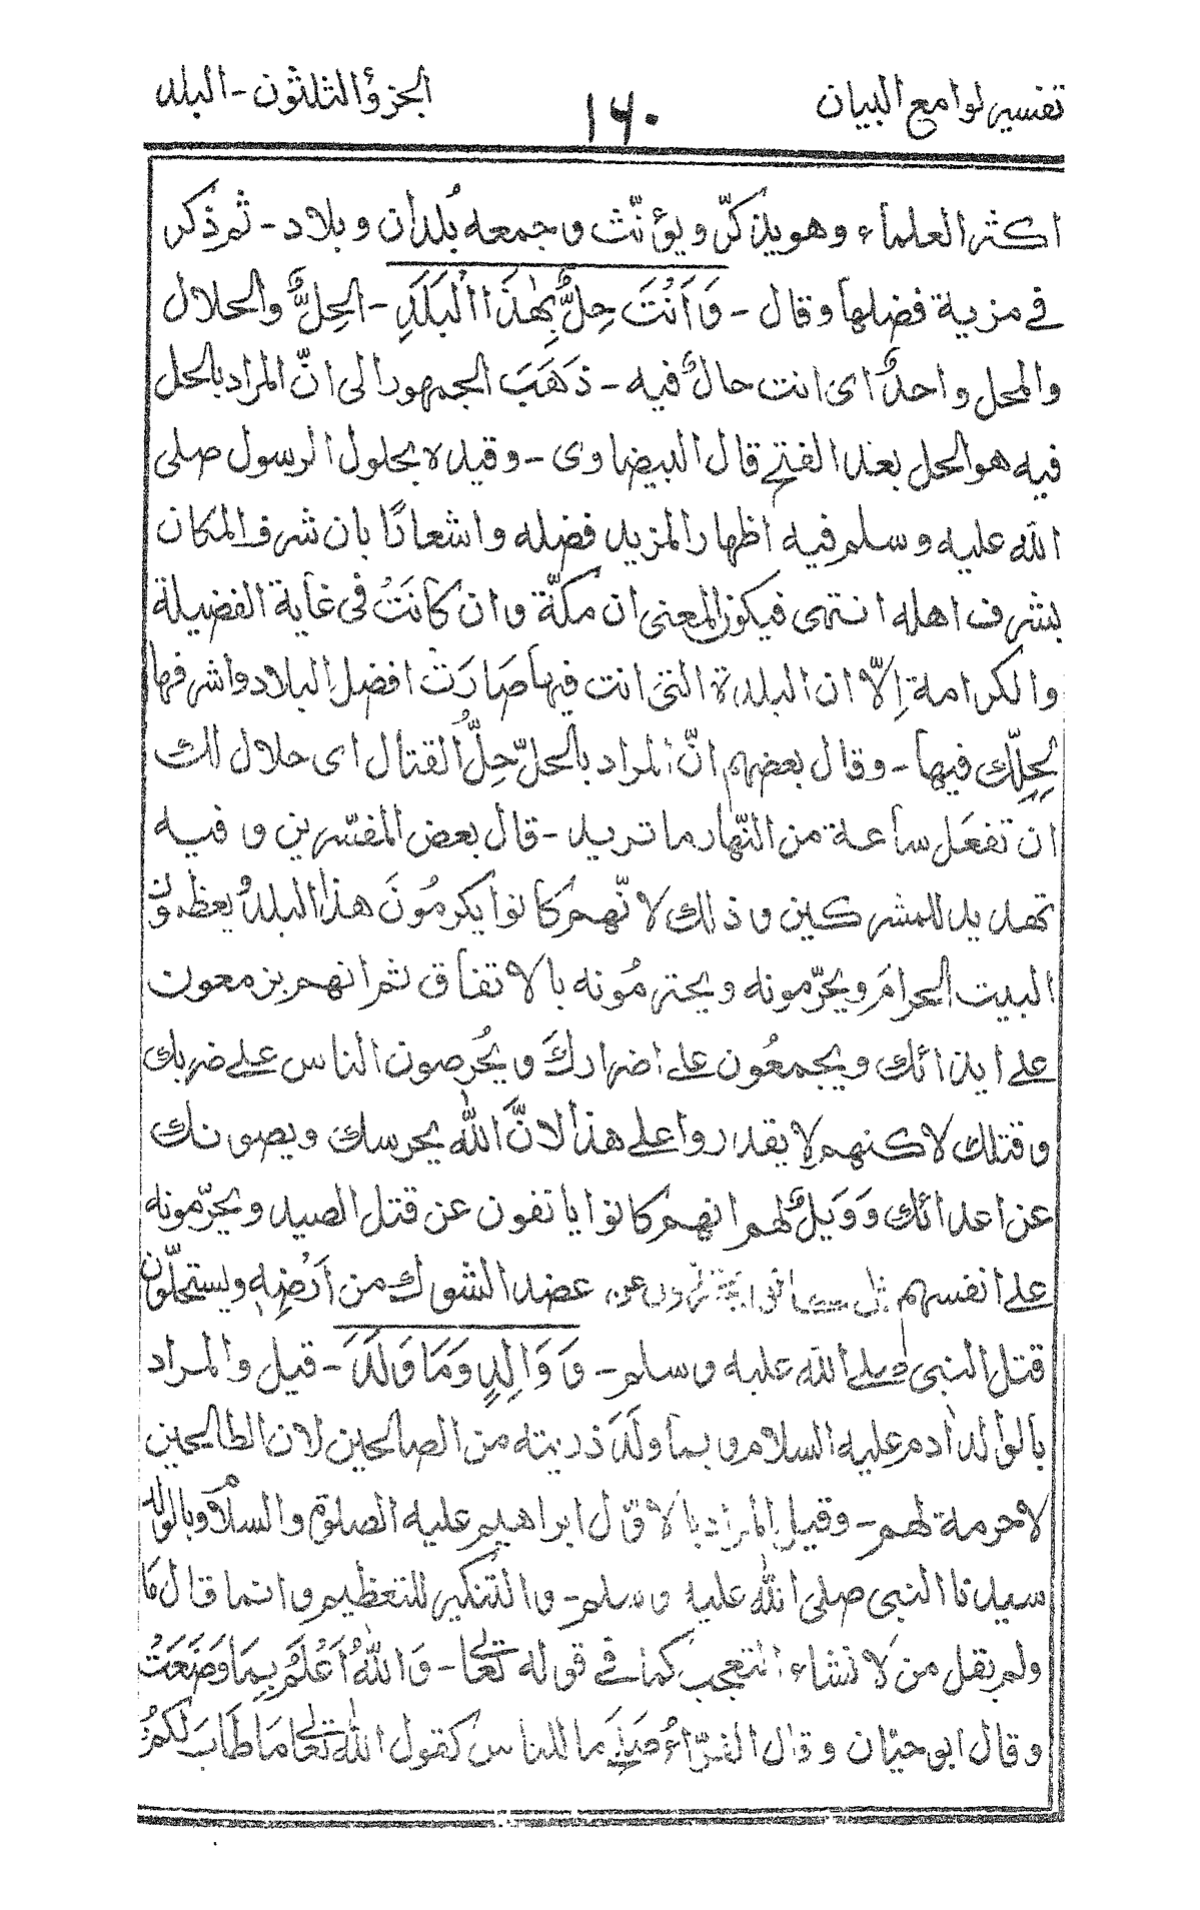 تفسير لوامع البيان
١٦٠
الجزؤ الثلثون - البلد
اكثر العلماء وهو يذكّر و يؤنّث و جمعه بُلدان و بلاد - ثم ذكر
في مزية فضلها وقال - وَاَنْتَ حِلٌّ بِهٰذَا الْبَلَدِ - الحِلُّ والحلال
والمحل واحدٌ اى انت حالٌ فيه - ذهَبَ الجمهور الى انّ المراد بالحل
فيه هو الحل بعد الفتح قال البيضاوى - وقيده بحلول الرسول صلى
الله عليه وسلم فيه اظهار المزيد فضله واشعارًا بان شرف المكان
بشرف اهله انتهى فيكون المعنى ان مكّة وان كانَتْ فى غاية الفضيلة
والكرامة اِلّا ان البلدة التى انت فيها صَارَتْ افضل البلاد واشرفها
لِحِلِّك فيها - وقال بعضهم انّ المراد بالحلّ حِلُّ القتال اى حلال لك
ان تفعَل ساعة من النّهار ما تريد - قال بعض المفسّرين و فيه
تهديد للمشركين و ذلك لانّهم كانوا يكرمُونَ هذا البلد و يعظمون
البيت الحرامَ ويحرّمونه ويحترمُونه بالاتفاق ثم انهم يزمعون
على ايذائك ويجمعُون على اضرارك و يُحرصون الناس على ضربك
و قتلك لاكنهم لا يقدروا على هذا لانَّ الله يحرسك ويصونك
عن اعدائك وَوَيلٌ لهم انهم كانوا يانفون عن قتل الصيد ويحرّمونه
على انفسهم بل كانوا عن عضد الشوك من اَرْضِه ويستحلّون
قتل النبى صلى الله عليه وسلم - وَوَالِدٍ وَمَا وَلَدَ - قيل والمراد
بالوالد ادم عليه السلام و بما ولَدَ ذريته من الصالحين لان الطالحين
لاحرمة لهم - وقيل المراد بالاوّل ابراهيم عليه الصلوة والسلام وبالولد
سيدنا النبى صلى الله عليه وسلم - والتنكير للتعظيم وانما قال مَا
ولم يقل من لانشاء التعجب كما فى قوله تعالى - وَاللهُ اَعْلَمُ بِمَا وَضَعَتْ
وقال ابو حيّان وقال الفرّاء صَلح ما للناس كقول الله تعالى مَا طَابَ لَكُمْ